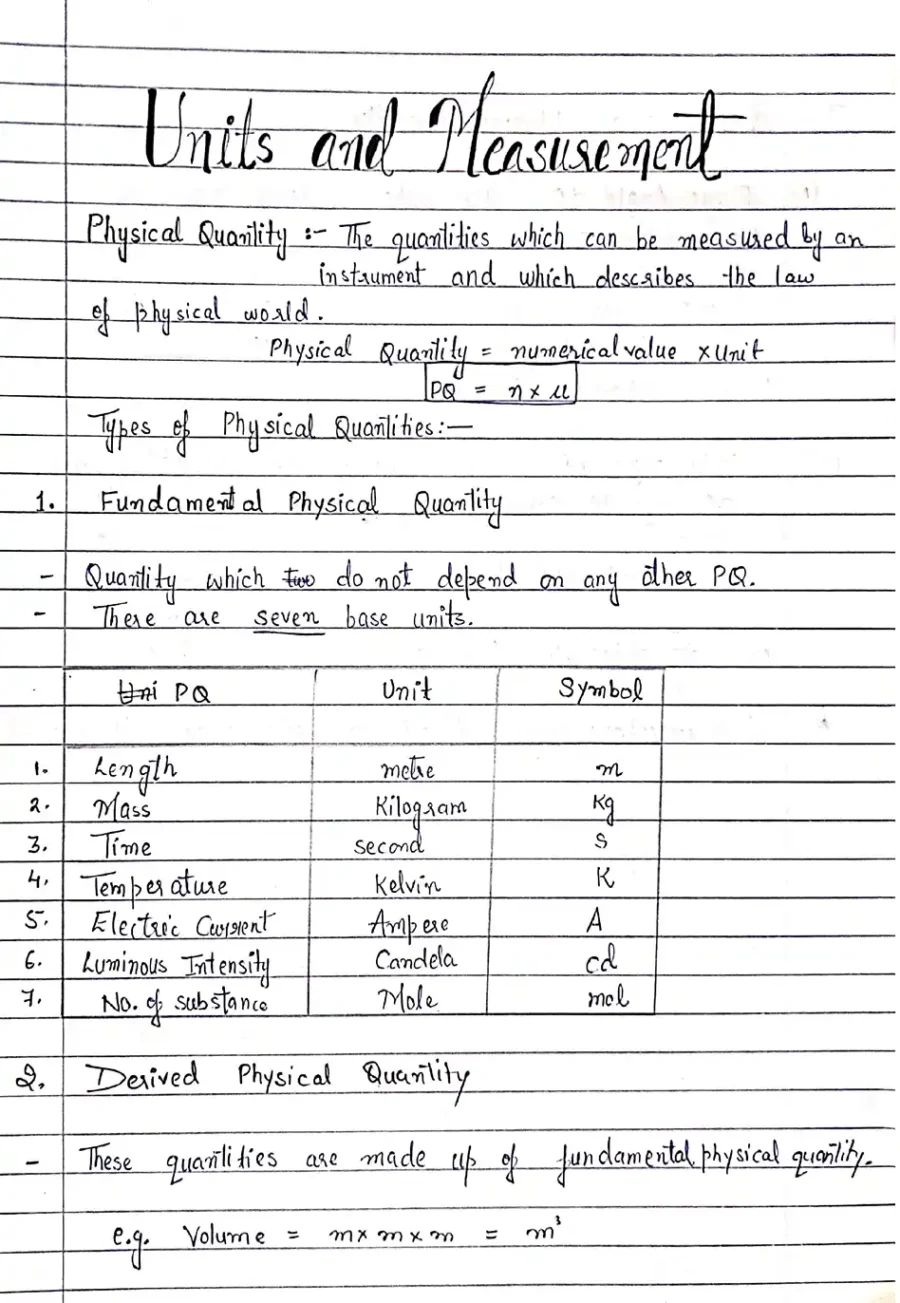 Units and Measurement
Physical Quantity :- The quantities which can be measured by an
instrument and which describes the law
of physical world.
Physical Quantity = numerical value x Unit
PQ = n x u
Types of Physical Quantities:—
1. Fundamental Physical Quantity
- Quantity which two do not depend on any other PQ.
- There are seven base units.
Uni PQ Unit Symbol
1. Length metre m
2. Mass Kilogram Kg
3. Time second S
4. Temperature Kelvin K
5. Electric Current Ampere A
6. Luminous Intensity Candela cd
7. No. of substance Mole mol
2. Derived Physical Quantity
- These quantities are made up of fundamental physical quantity.
e.g. Volume = m x m x m = m³